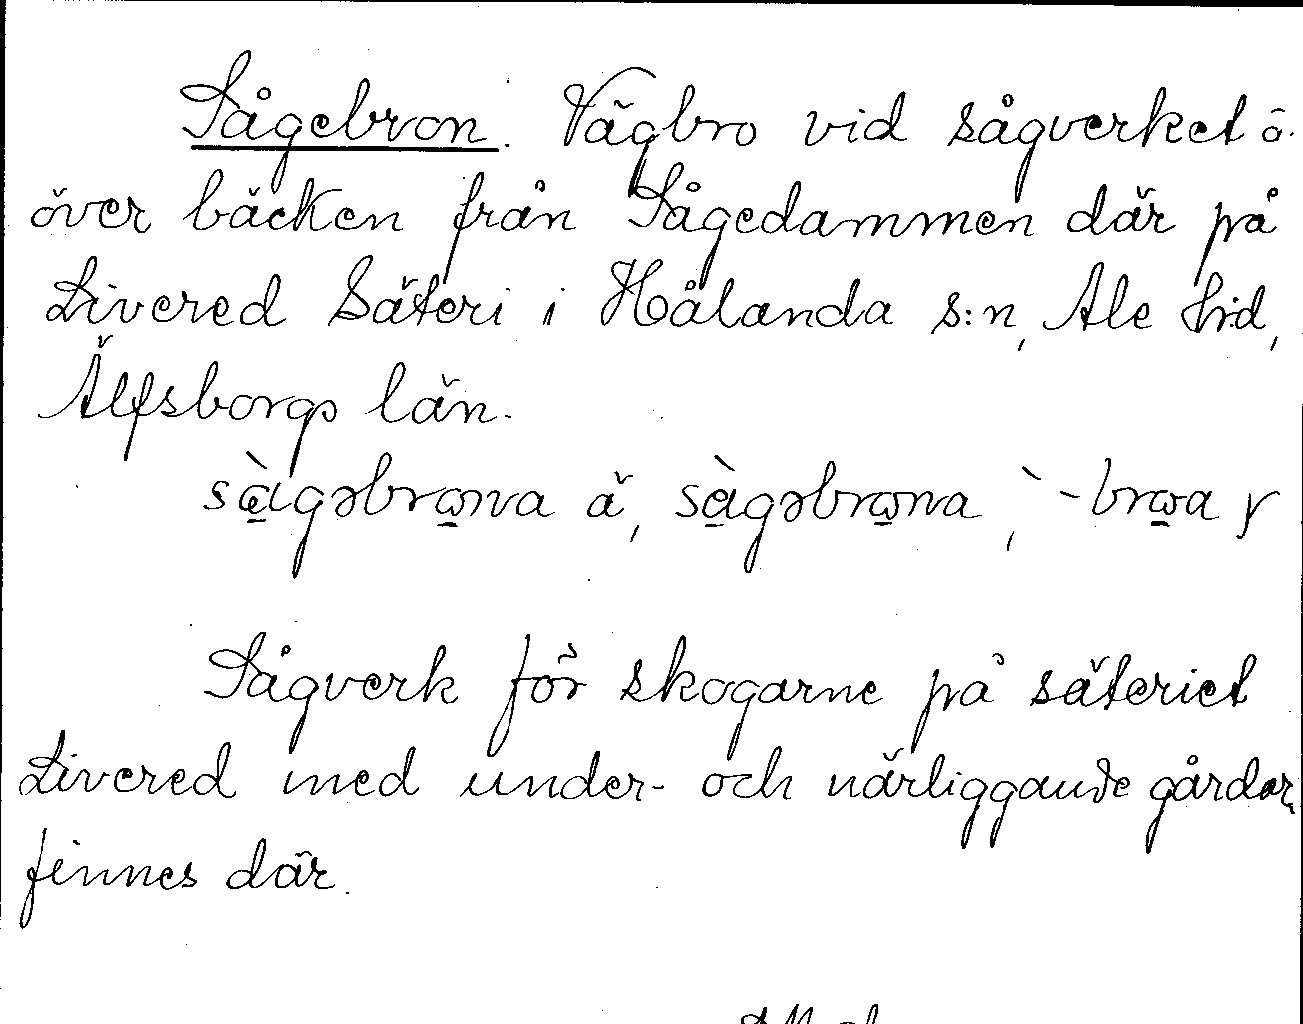 Sågebron. Vägbro vid sågverket ö.
över bäcken från Sågedammen där på
Livered Säteri i Hålanda s:n, Ale hd,
Älfsborgs län.
sàgəbrωna ä, sàgəbrωna, `-brωa y
Sågverk för skogarne på säteriet
Livered med under- och närliggande gårdar
finnes där.